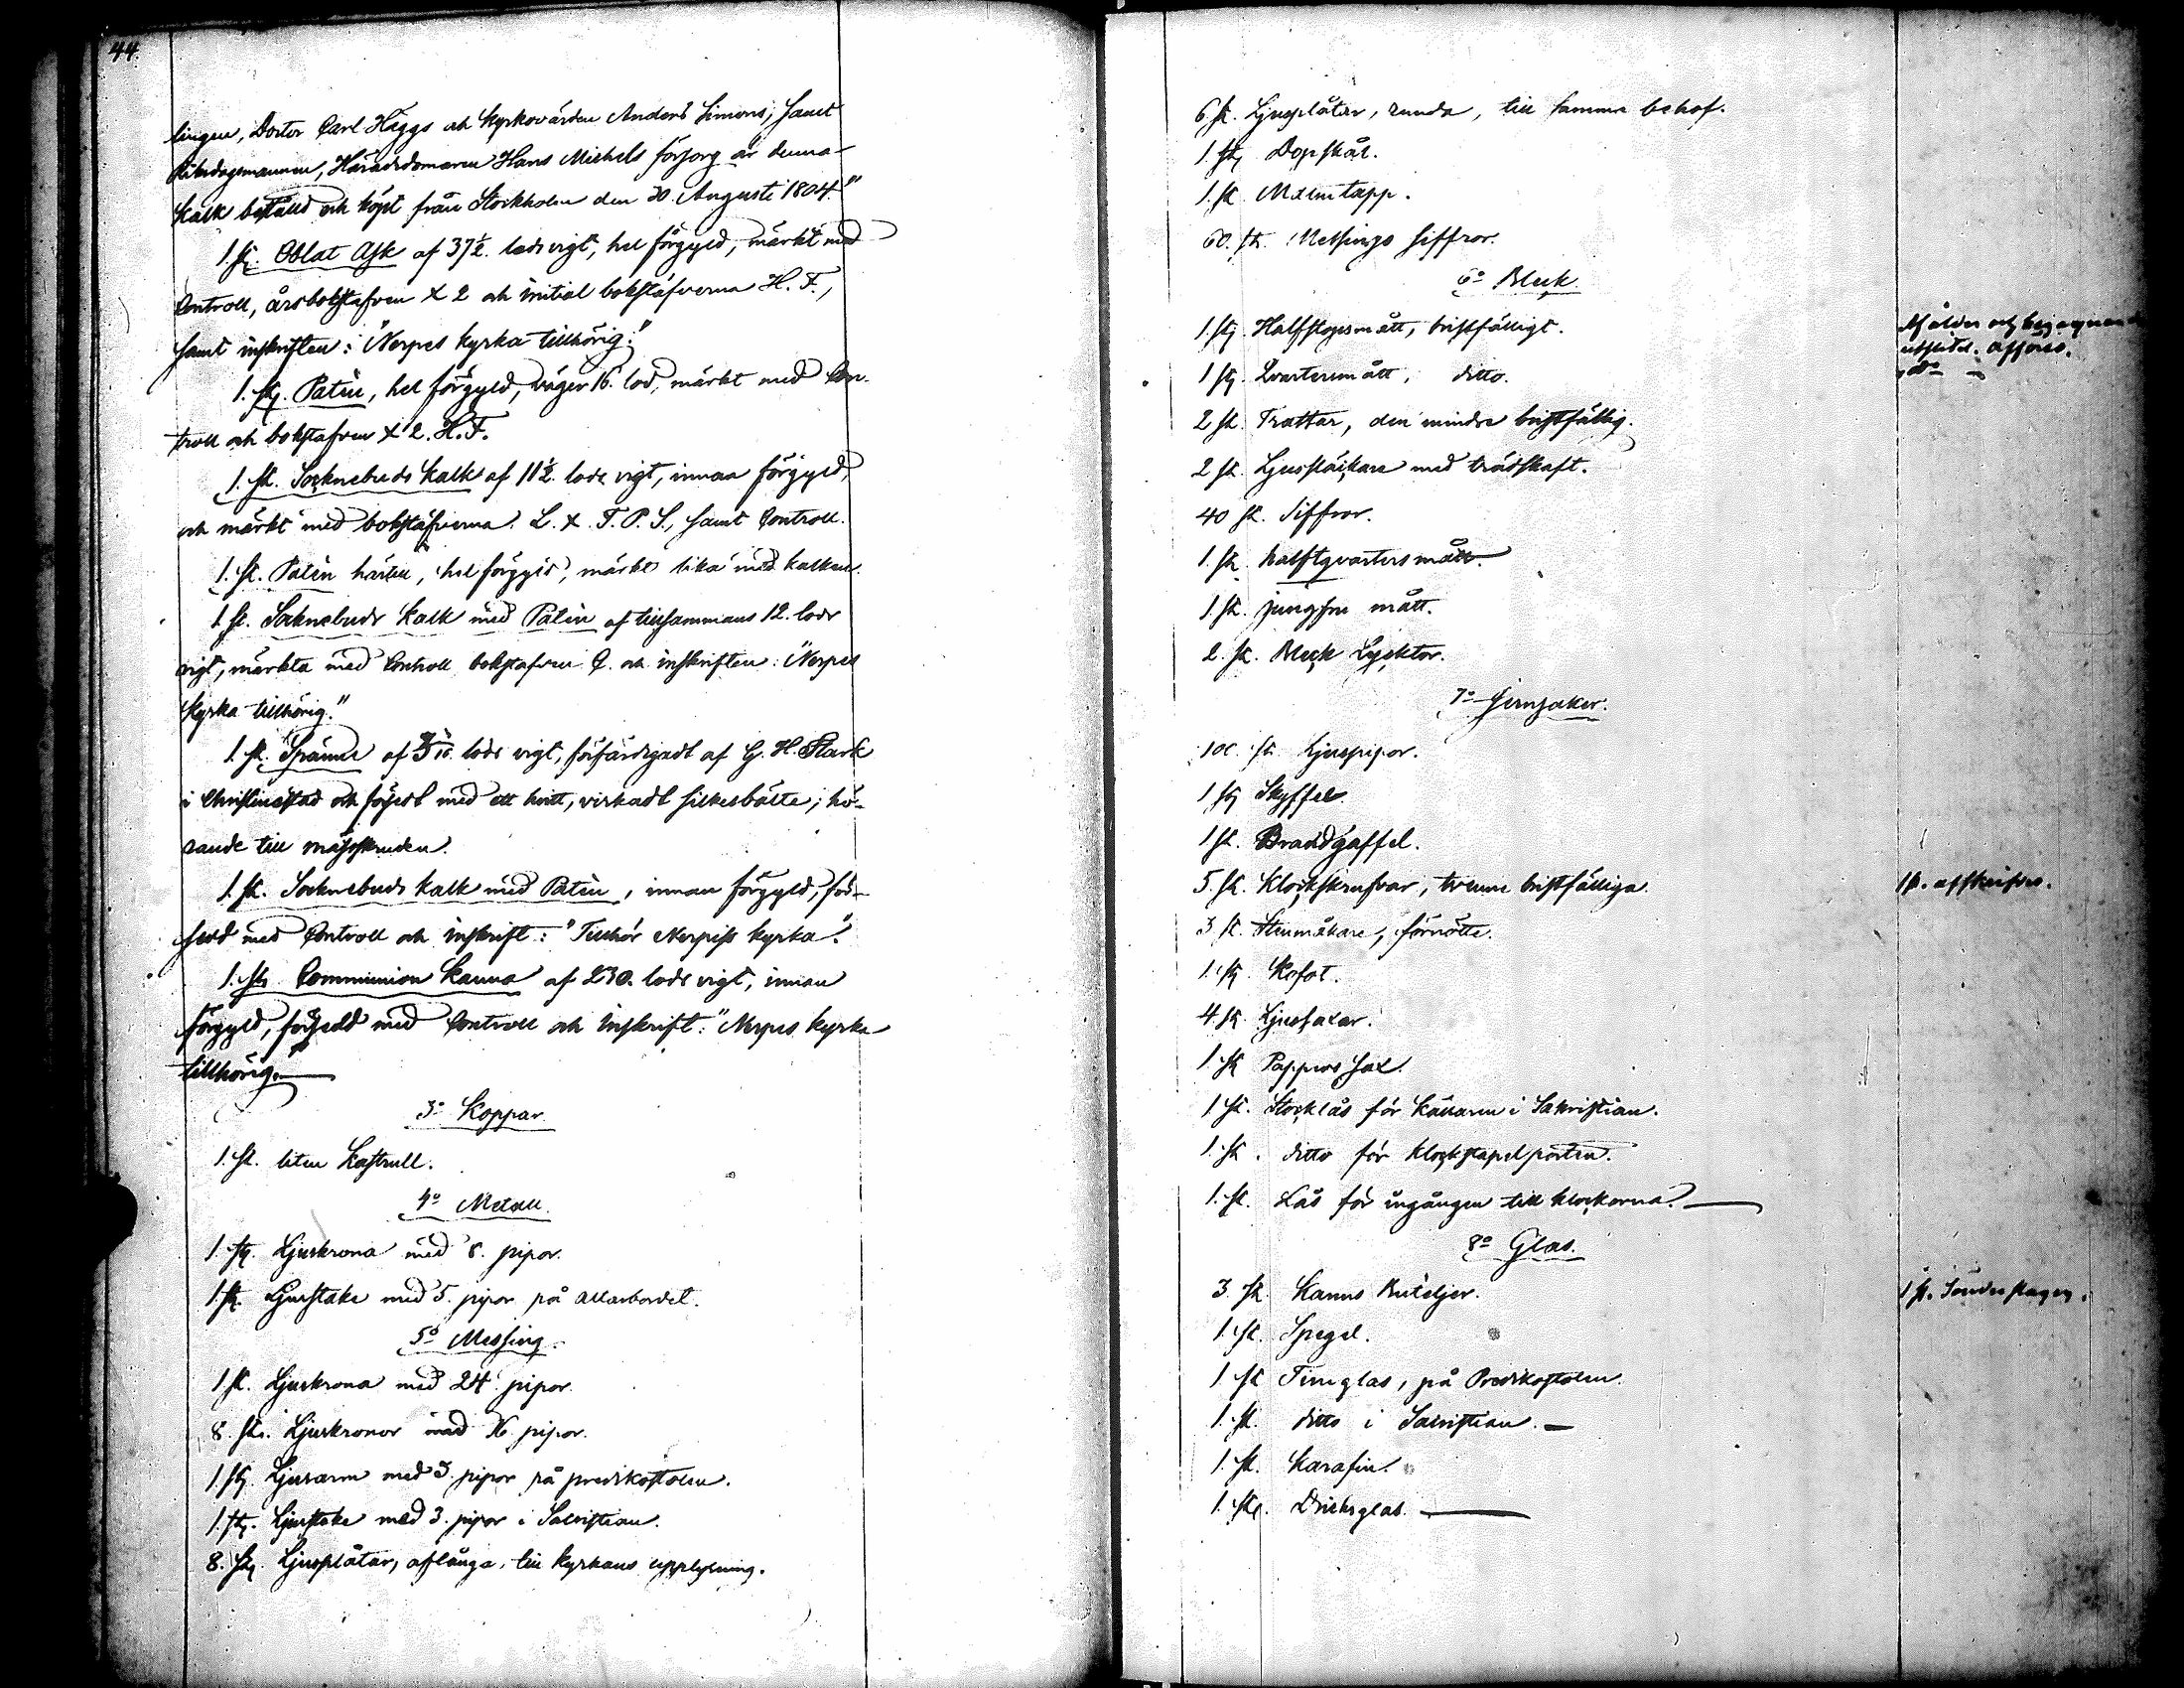 44.
lingen, Doctor Carl Häggs och Kyrkovärden Anders Simons, samt
Riksdagsmannen, Häradsdomaren Hans Michels försorg är denna
Kalk bestäld och köpt från Stockholm den 20 Augusti 1804."
1. st. Oblat Ask af 37½. lods vigt, hel förgyld, märkt med
Controll, årsbokstafven X 2 och initial bokstäfverna H. F.,
samt inskriften: "Nerpes kyrka tillhörig."
1. st. Patén, hel förgyld, väger 16. lod, märkt med Con-
troll och bokstafven X 2. H. F.
1. st. Socknebuds Kalk af 11½. lods vigt, innan förgyld,
och märkt med bokstäfverna. L. X. F. P. S., samt Controll.
1. st. Patén härtill, hel förgyld, märkt lika med kalken.
1. st. Socknebuds Kalk med Patén af tillsammans 12. lods
vigt, märkta med Controll bokstafven Q. och inskriften: "Nerpes
Kyrka tillhörig."
1. st. Spänne af lods vigt, förfärdigadt af G. H. Stark
i Christinestad och försedt med ett hvitt, virkadt silkesbälte; hö-
rande till mässskruden.
1. st. Socknebuds kalk med Patén, innan förgyld, för-
sedd med Controll och inskrift: "Tillhör Nerpiss kyrka."
1. st. Communion Kanna af 230. lods vigt, innan
förgyld, försedd med Controll och inskrift: "Nerpes kyrka
tillhörig."
3o Koppar.
1. st. liten Kastrull.
4o Metall.
1. st. Ljuskrona med 8. pipor.
1. st. Ljusstake med 5. pipor på altarbordet.
5o Messing.
1. st. Ljuskrona med 24 pipor.
8. st. Ljuskronor med 16 pipor.
1. st. Ljusarm med 3. pipor på predikostolen.
1. st. Ljusstake med 3. pipor i Sacristian.
8. st. Ljusplåtar, aflånga, till kyrkans upplysning.
6. st. Ljusplåtar, runda, till samma behof.
1. st. Dopskål.
1. st. Malmtapp.
60. st. Messings siffror.
6o Bleck.
1. st. Halfstopsmått, bristfälligt. Af ålder och begagnande
utslitet. afföres.
1 st. Qvartersmått, ditto. do
2 st. Trattar, den mindre bristfällig.
2 st. Ljussläckare med trädskaft.
40 st. Siffror.
1. st. halftqvartersmått.
1. st. jungfru mått.
2. st. Bleck Lycktor.
7o Jernsaker.
100. st. Ljuspipor.
1 st. Skyffel.
1 st. Brandgaffel.
5. st. Klockskrufvar, tvenne bristfälliga. 1 st. afskrifves.
3 st. förnötte.
1. st. Kofot.
4. st. Ljussaxar.
1 st. Pappers sax.
1 st. Stocklås för källaren i Sakristian.
1. st. ditto för klockstapelporten.
1. st. Lås för ingången till klockorna.
8o Glas.
3. st. Kanns Buteljer. 1 st. Sönderslagen.
1. st. Spegel.
1. st. Timglas, på Predikostolen.
1. st. ditto i Sacristian.
1. st. Karafin.
1. st. Dricksglas.